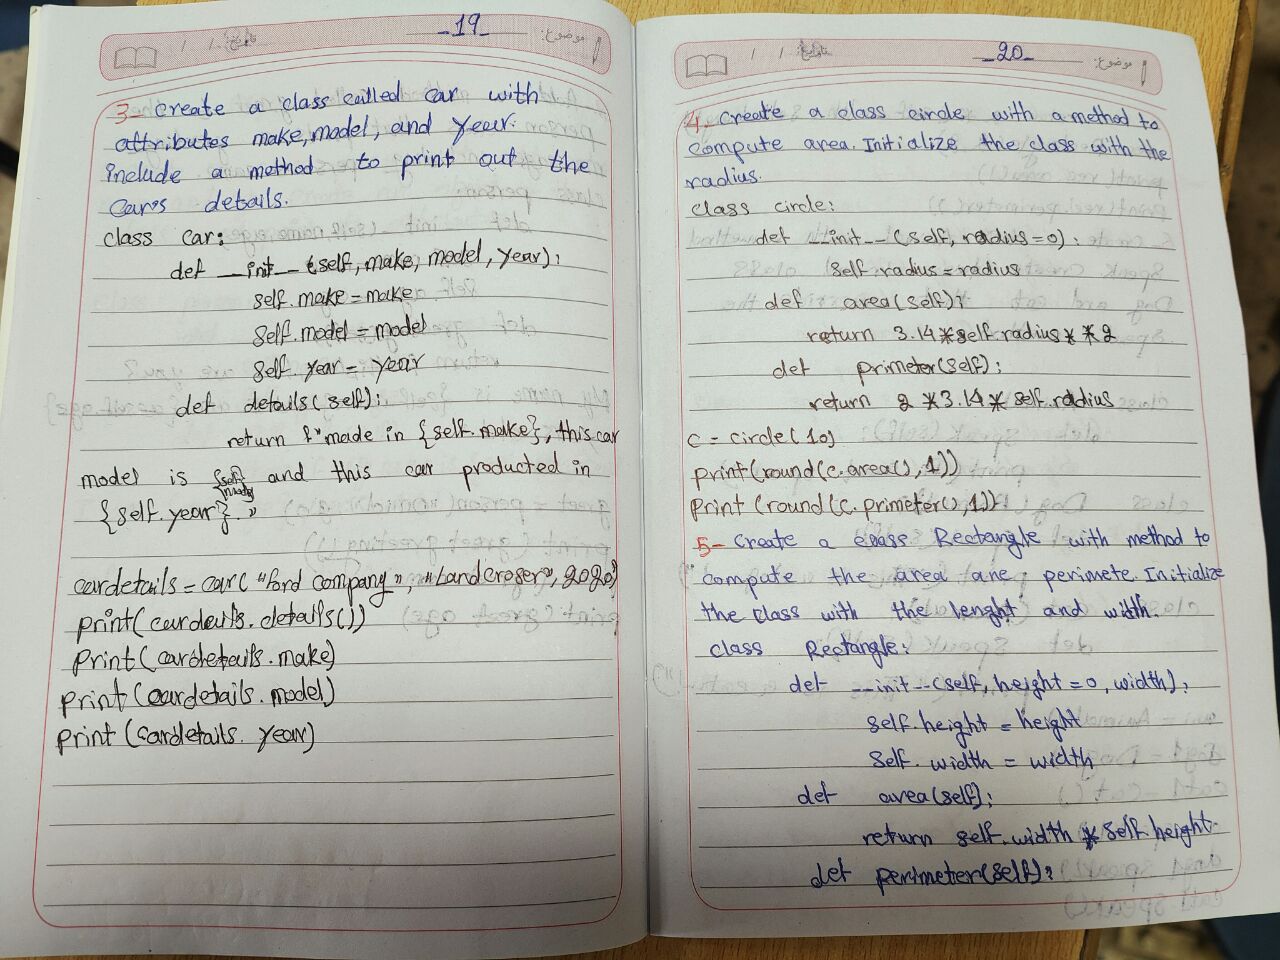 موضوع:
-19-
تاریخ: / /
3- Create a class called car with
attributes make, model, and year.
include a method to print out the
car's details.
class car:
def __init__(self, make, model, year):
self.make = make
self.model = model
self.year = year
def details(self):
return f"made in {self.make}, this car
model is {self.model} and this car producted in
{self.year}."
cardetails = car("Ford company", "Landcroser", 2020)
print(cardetails.details())
print(cardetails.make)
print(cardetails.model)
print(cardetails.year)
موضوع:
-20-
تاریخ: / /
4- Create a class circle with a method to
compute area. Initialize the class with the
radius.
class circle:
def __init__(self, radius=0):
self.radius = radius
def area(self):
return 3.14*self.radius**2
def primeter(self):
return 2*3.14*self.radius
c = circle(10)
print(round(c.area(),1))
print(round(c.primeter(),1))
5- Create a class Rectangle with method to
compute the area ane perimete. Initialize
the class with the lenght and width.
class Rectangle:
def __init__(self, height=0, width):
self.height = height
self.width = width
def area(self):
return self.width * self.height
def perimeter(self):